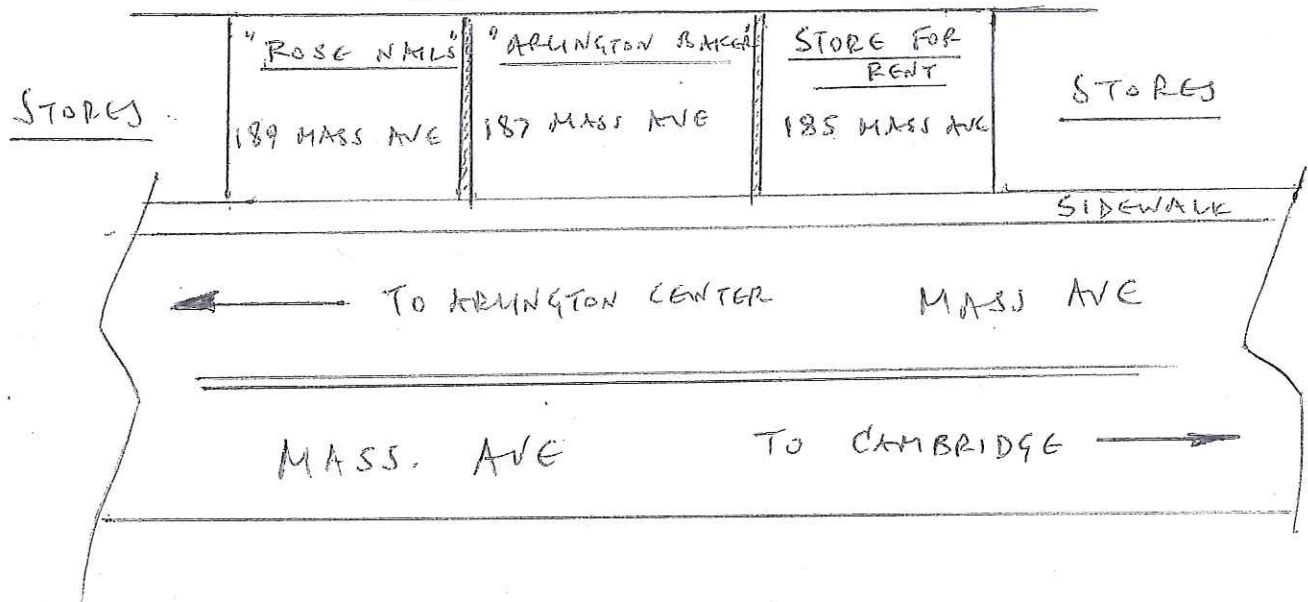 STORES
"ROSE NAILS"
189 MASS AVE
"ARLINGTON BAKER"
187 MASS AVE
STORE FOR
RENT
185 MASS AVE
STORES
SIDEWALK
TO ARLINGTON CENTER
MASS AVE
MASS. AVE
TO CAMBRIDGE